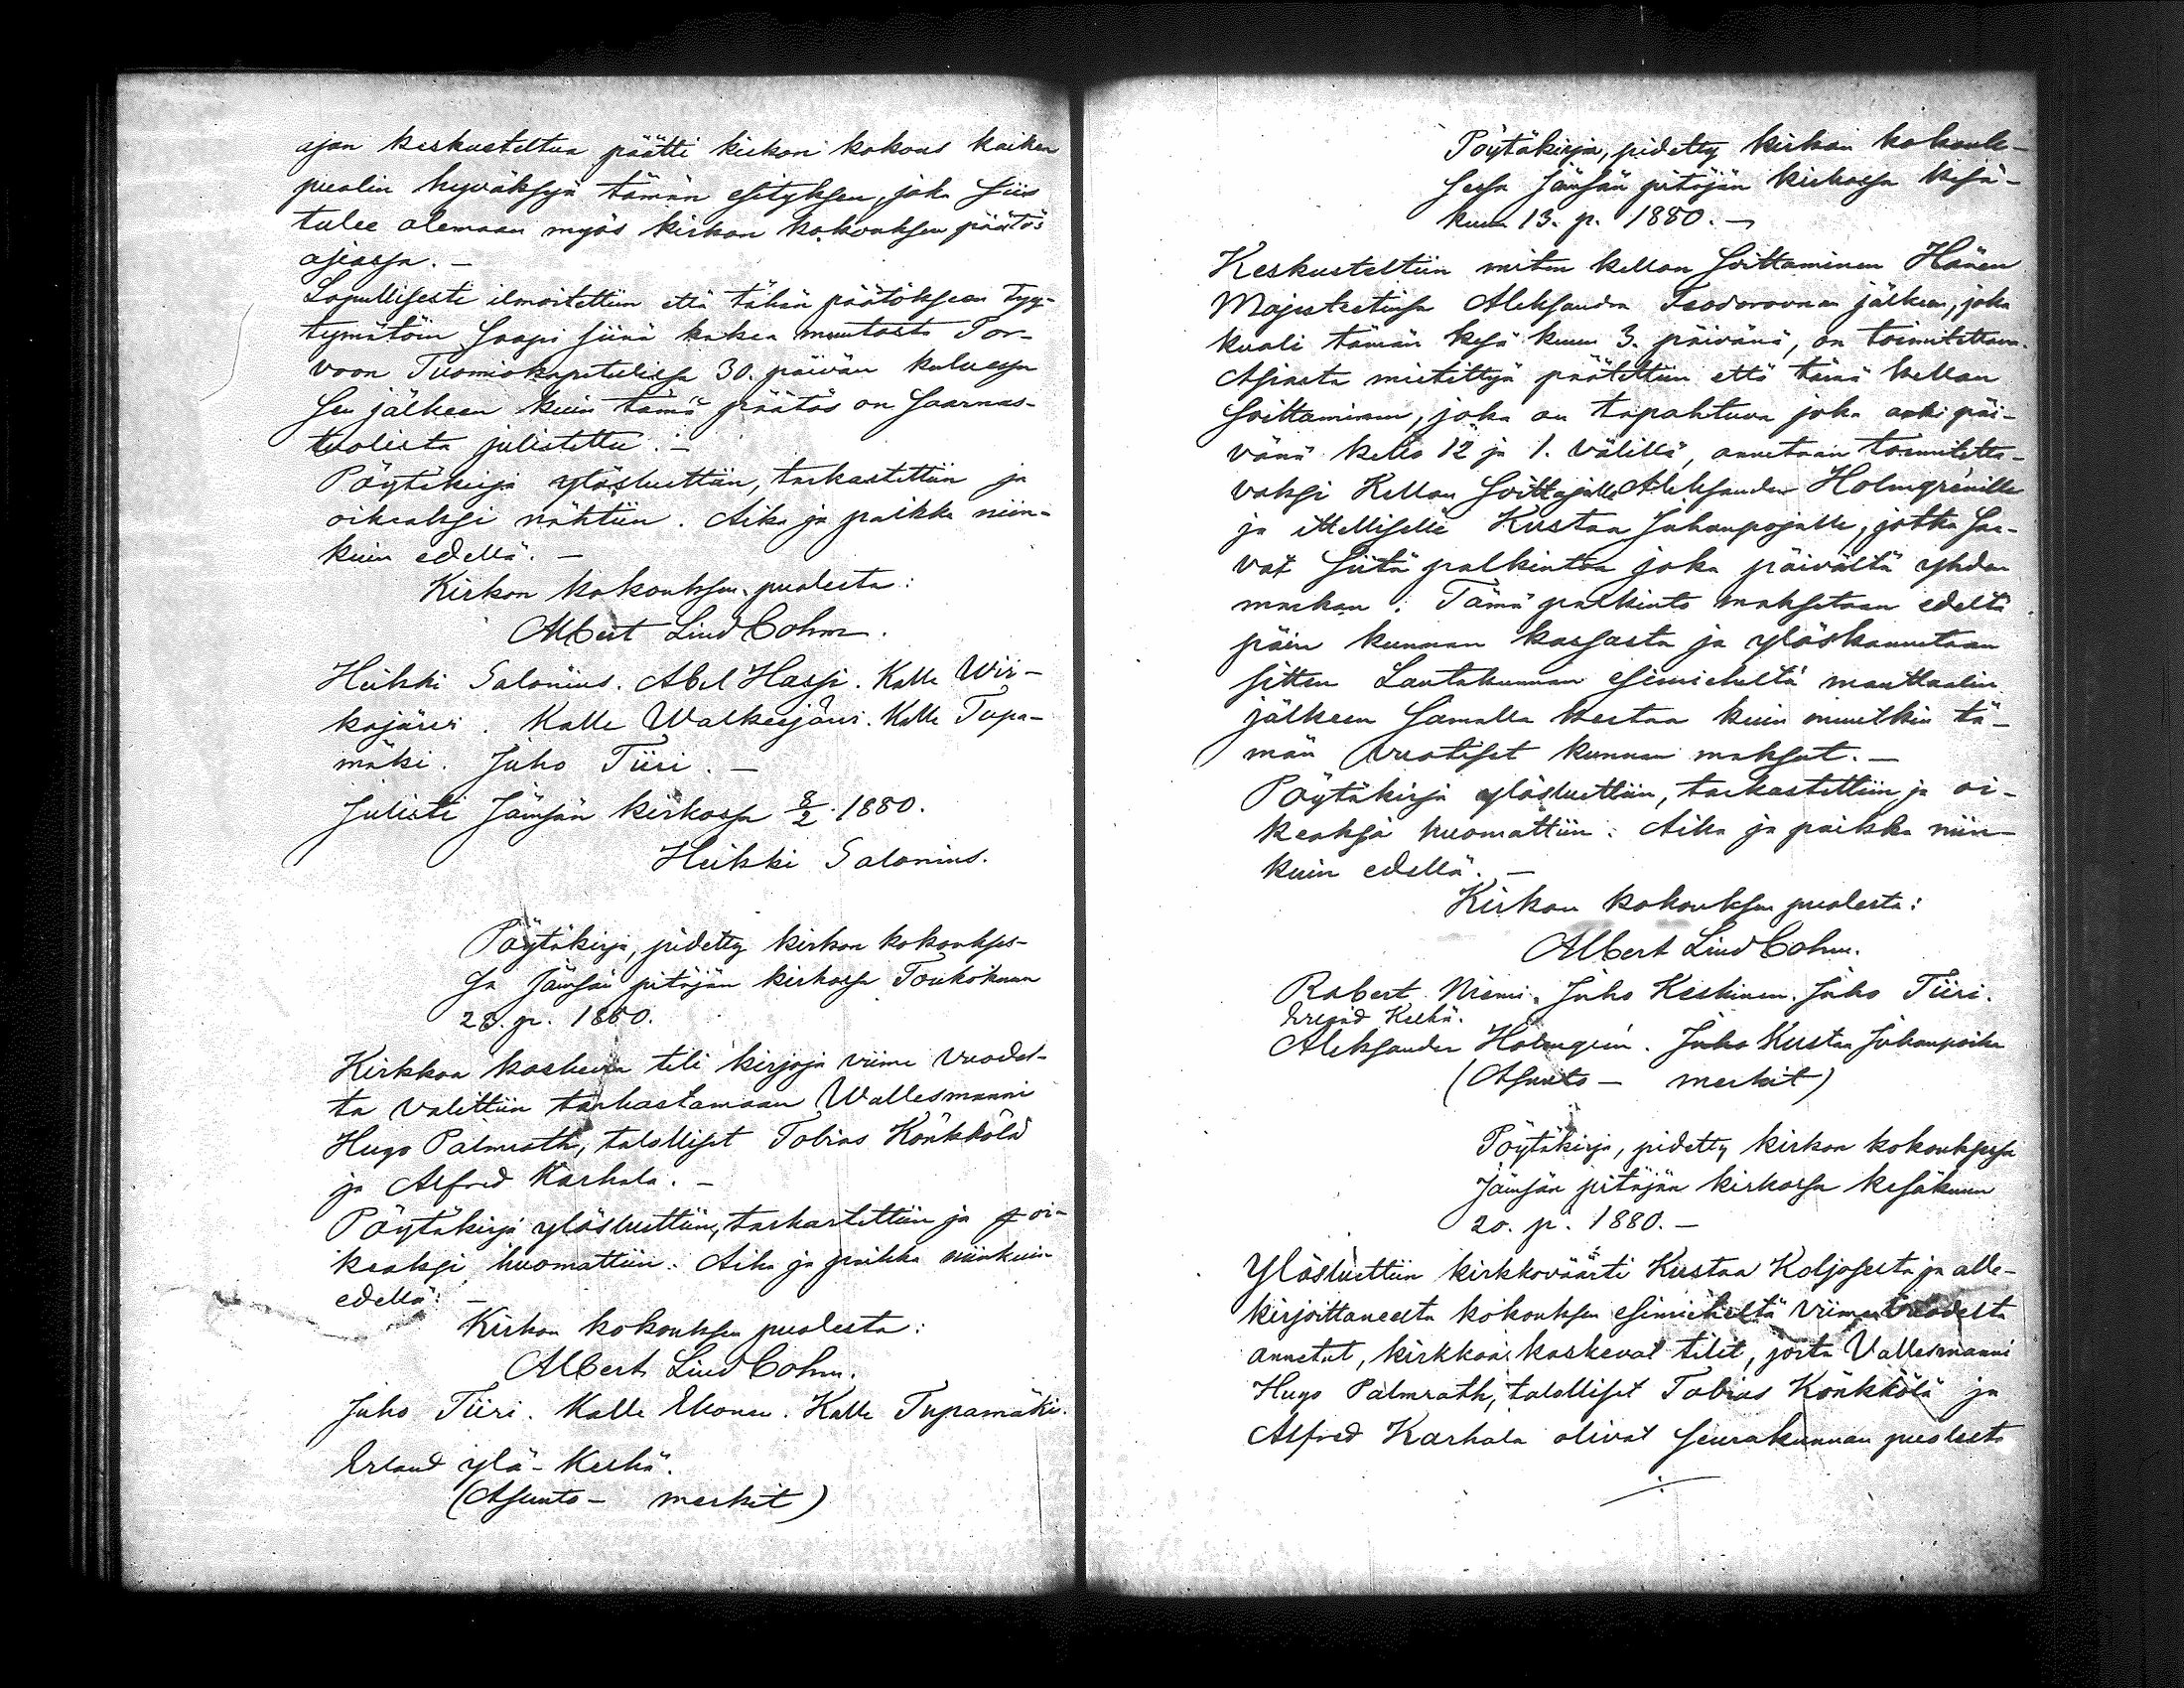 ajan keskusteltua päätti kirkon kokous kaiken
puolin hyväksyä tämän esityksen, joka siis
tulee olemaan myös kirkon kokouksen päätös
asiassa. —
Lopullisesti ilmoitettiin että tähän päätökseen tyy-
tymätöin saapi siinä hakea muutosta Por-
voon Tuomiokapitulissa 30. päivän kuluessa
sen jälkeen kuin tämä päätös on saarnas-
tuolista julistettu. —
Pöytäkirja ylösluettiin, tarkastettiin ja
oikeaksi nähtiin. Aika ja paikka niin-
kuin edellä. —
Kirkon kokouksen puolesta:
Albert Lindbohm.
Heikki Salonius. Abel Hassi. Kalle Wir-
kajärvi. Kalle Walkeejärvi. Kalle Tupa-
mäki. Juho Tiiri. —
Julisti Jämsän kirkossa 8/2 1880.
Heikki Salonius.
Pöytäkirja, pidetty kirkon kokoukses-
sa Jämsän pitäjän kirkossa Toukokuun
23. p. 1880.
Kirkkoa koskevia tili kirjoja viime vuodes-
ta valittiin tarkastamaan Wallesmanni
Hugo Palmroth, talolliset Tobias Könkkölä
ja Alfred Karhala. —
Pöytäkirja ylösluettiin, tarkastettiin ja oi-
keaksi huomattiin. Aika ja paikka niinkuin
edellä: —
Kirkon kokouksen puolesta:
Albert Lindbohm.
Juho Tiiri. Kalle Ekonen. Kalle Tupamäki.
Erland ylä-Keehä.
(Asunto- merkit)
Pöytäkirja, pidetty kirkon kokouk-
sessa Jämsän pitäjän kirkossa kesä-
kuun 13. p. 1880. —
Keskusteltiin miten kellon soittaminen Hänen
Majesteetinsa Aleksandra Feodorovnan jälkeen, joka
kuoli tämän kesä kuun 3. päivänä, on toimitettava.
Asiasta mietittyä päätettiin että tämä kellon
soittaminen, joka on tapahtuva joka arki päi-
vänä kello 12 ja 1. välillä, annetaan toimitetta-
vaksi Kellon soittajalle Aleksander Holmgrénille
ja ittelliselle Kustaa Juhanpojalle, jotka saa-
vat siitä palkintoa joka päivältä yhden
markan. Tämä palkinto maksetaan edeltä
päin kunnan kassasta ja ylöskannetaan
sitten Lautakunnan esimieheltä manttaalin
jälkeen samalla kertaa kuin muutkin tä-
män vuotiset kunnan maksut. —
Pöytäkirja ylösluettiin, tarkastettiin ja oi-
keaksi huomattiin: Aika ja paikka niin-
kuin edellä. —
Kirkon kokouksen puolesta:
Albert Lindbohm.
Robert Niemi. Juho Keskinen. Juho Tiiri.
Erland Keehä.
Aleksander Holmgrén. Juho Kustaa Juhanpoika
(Asunto- merkit)
Pöytäkirja, pidetty kirkon kokouksessa
Jämsän pitäjän kirkossa kesäkuun
20. p. 1880. —
Ylösluettiin kirkkoväärti Kustaa Koljosesta ja alle-
kirjoittaneelta kokouksen esimieheltä viime vuodelta
annetut, kirkkoa koskevat tilit, joita Vallesmanni
Hugo Palmroth, talolliset Tobias Könkkölä ja
Alfred Karhala olivat seurakunnan puolesta